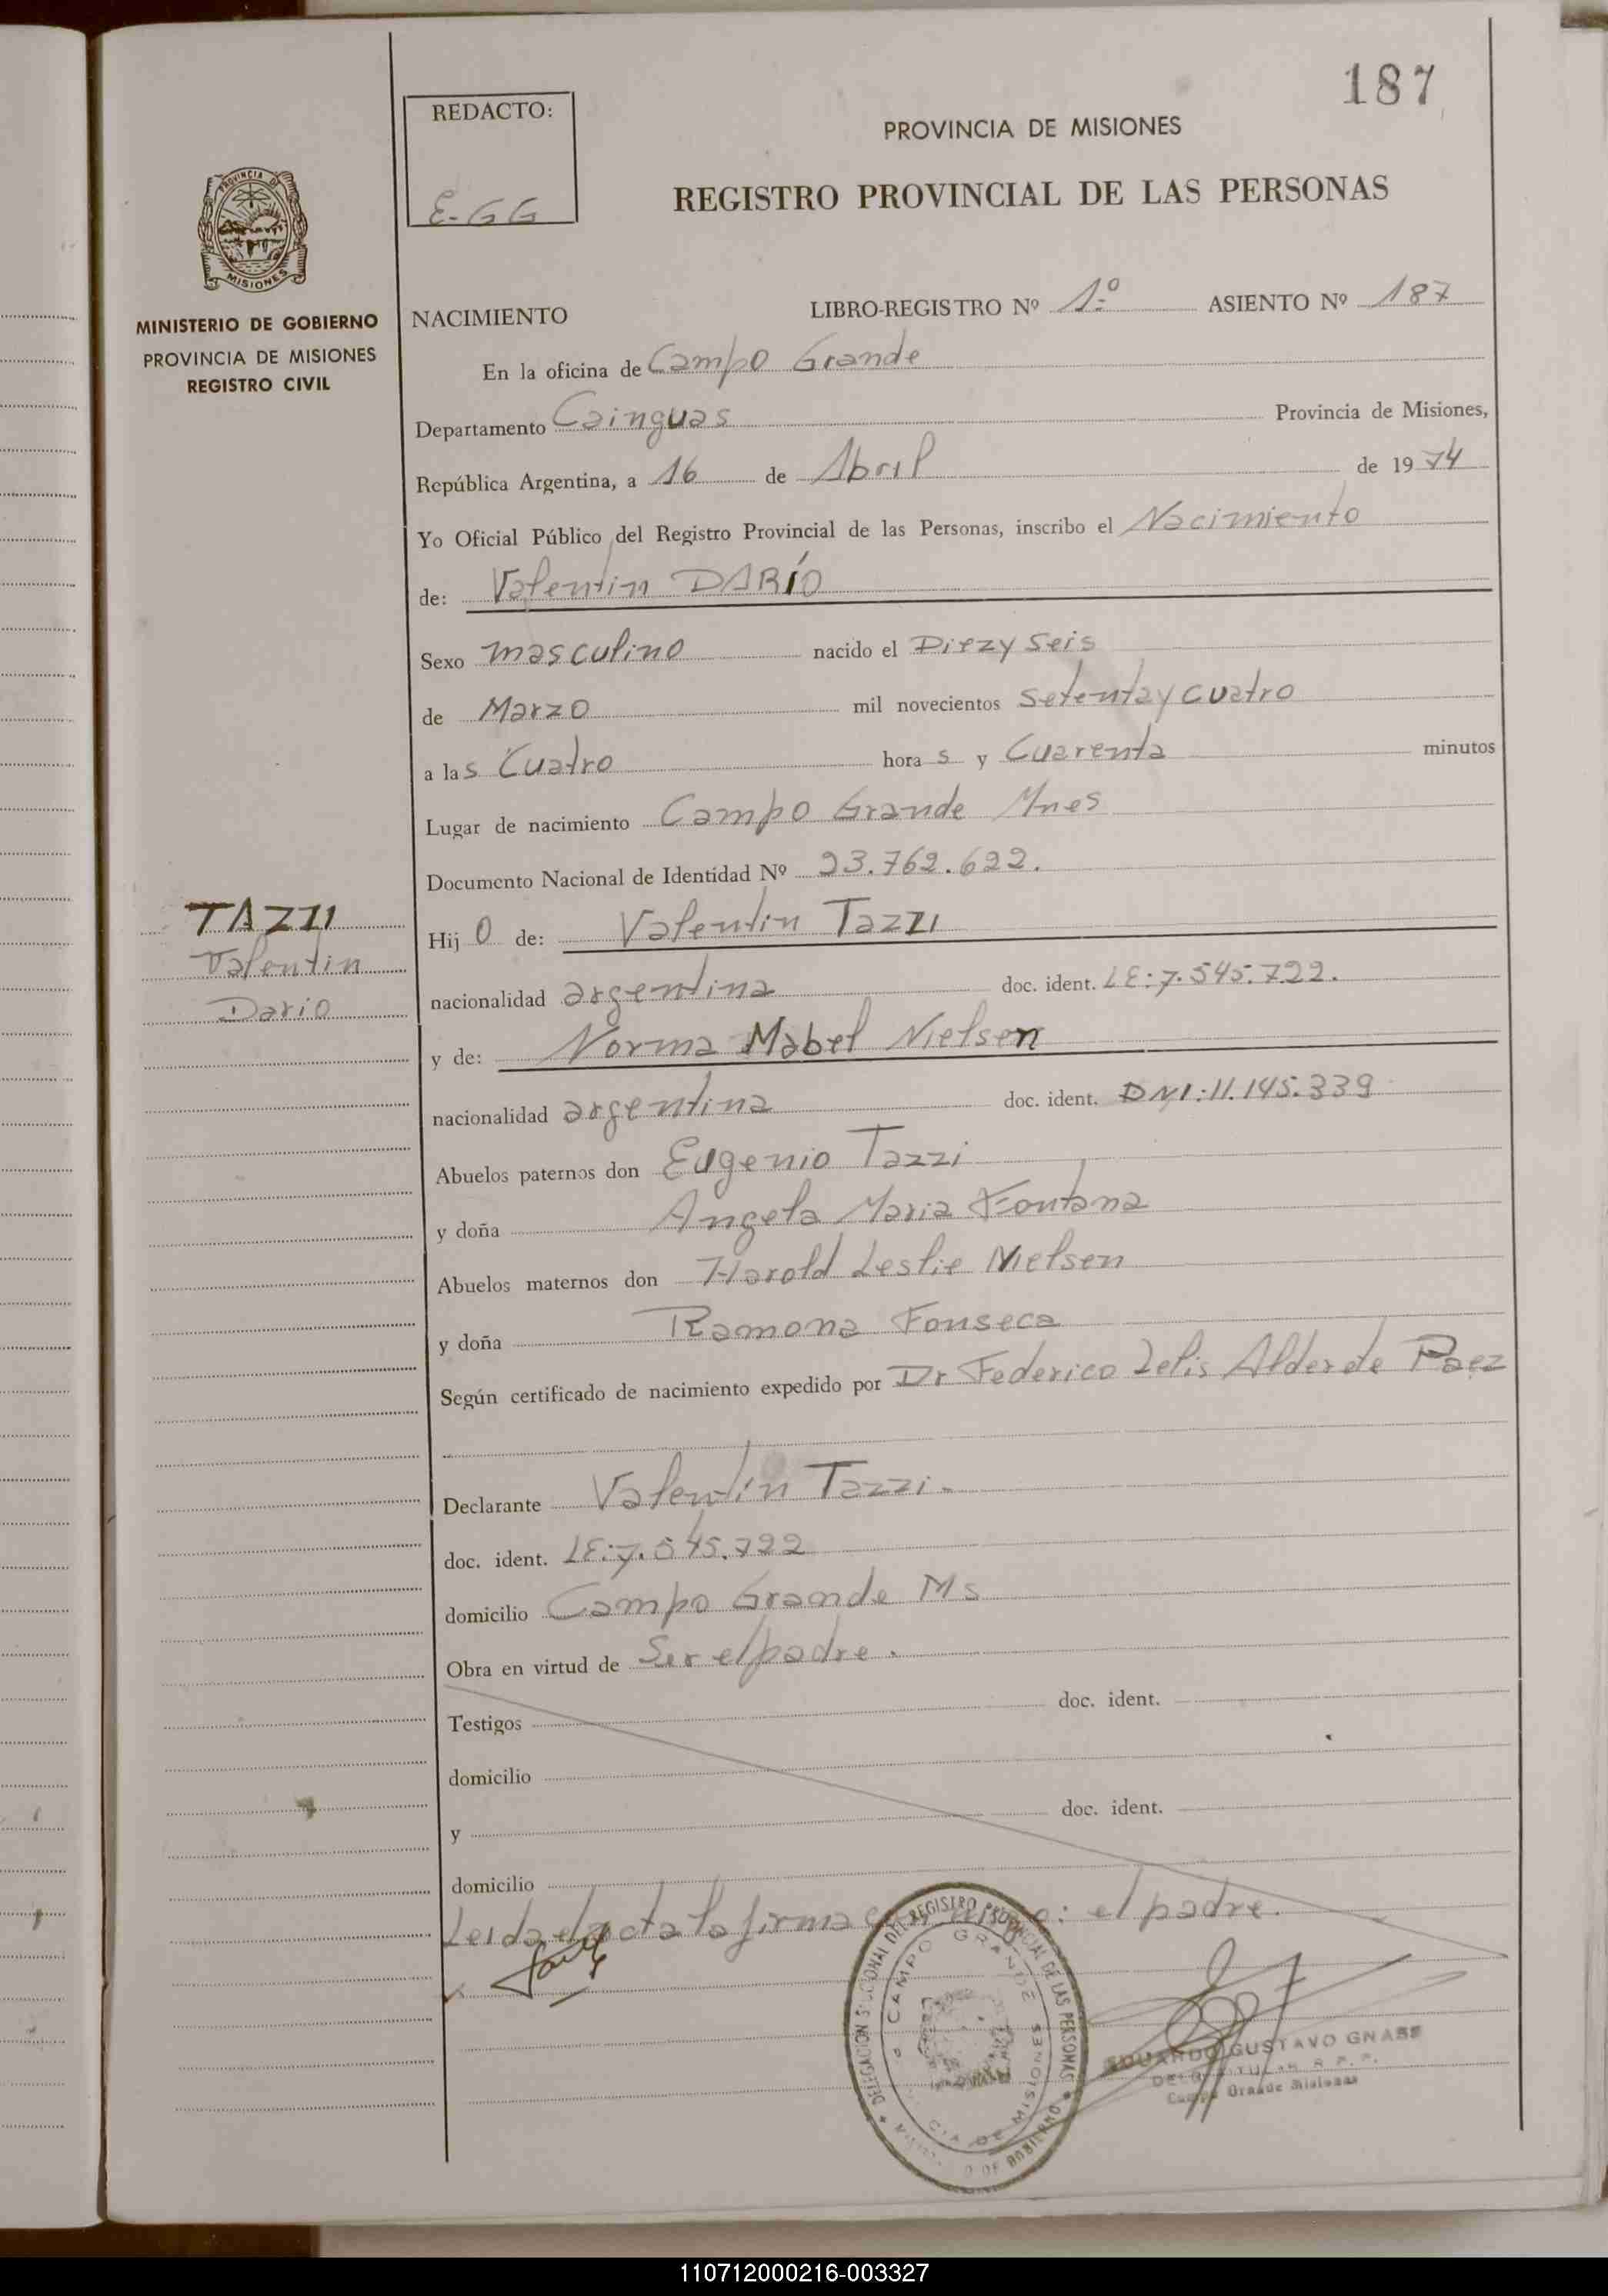 187
REDACTO:
E-GG
PROVINCIA DE MISIONES
REGISTRO PROVINCIAL DE LAS PERSONAS
PROVINCIA DE
MISIONES
MINISTERIO DE GOBIERNO
PROVINCIA DE MISIONES
REGISTRO CIVIL
NACIMIENTO LIBRO-REGISTRO Nº 1º ASIENTO Nº 187
En la oficina de Campo Grande
Departamento Cainguas Provincia de Misiones,
República Argentina, a 16 de Abril de 1974
Yo Oficial Público del Registro Provincial de las Personas, inscribo el Nacimiento
de: Valentin DARÍO
Sexo masculino nacido el Diezy Seis
de Marzo mil novecientos setentay cuatro
a las Cuatro hora s y Cuarenta minutos
Lugar de nacimiento Campo Grande Mnes
Documento Nacional de Identidad Nº 23.762.622.
TAZZI
Valentin
Dario
Hij o de: Valentin Tazzi
nacionalidad argentina doc. ident. LE: 7.545.722.
y de: Norma Mabel Nielsen
nacionalidad argentina doc. ident. DNI: 11.145.339
Abuelos paternos don Eugenio Tazzi
y doña Angela Maria Fontana
Abuelos maternos don Harold Leslie Nielsen
y doña Ramona Fonseca
Según certificado de nacimiento expedido por Dr Federico Lelis Alderete Paez
Declarante Valentin Tazzi.
doc. ident. LE: 7.545.722
domicilio Campo Grande Ms
Obra en virtud de Ser el padre.
Testigos doc. ident.
domicilio
y doc. ident.
domicilio
Leida el acta la firma : el padre.
DELEGACION DEL REGISTRO PROVINCIAL DE LAS PERSONAS
CAMPO GRANDE
MISIONES
EDUARDO GUSTAVO GNASS
TITULAR R. P. P.
Campo Grande Misiones
110712000216-003327